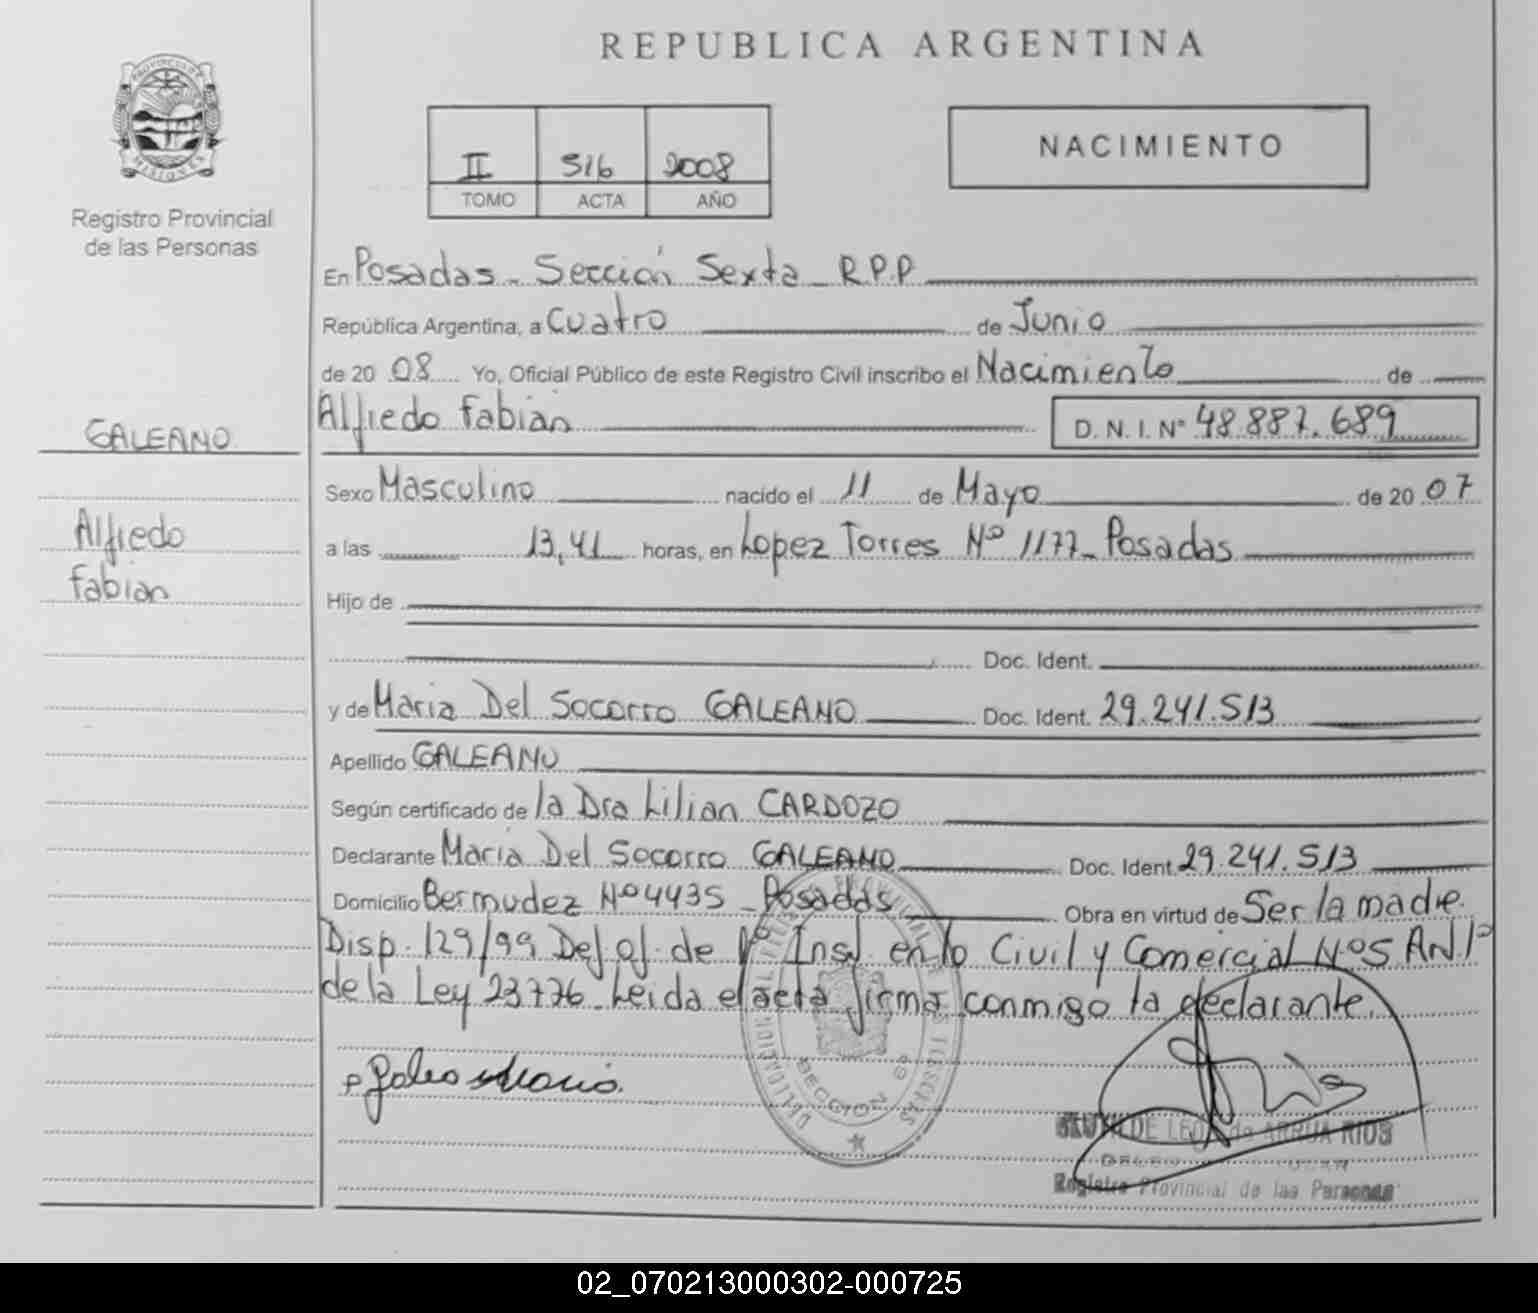 REPUBLICA ARGENTINA
PROVINCIA DE MISIONES
Registro Provincial
de las Personas
II 516 2008
TOMO ACTA AÑO
NACIMIENTO
En Posadas - Sección Sexta - R.P.P
República Argentina, a Cuatro de Junio
de 20 08 Yo, Oficial Público de este Registro Civil inscribo el Nacimiento de
Alfredo Fabián D.N.I. Nº 48.887.689
GALEANO
Alfredo
Fabian
Sexo Masculino nacido el 11 de Mayo de 20 07
a las 13,41 horas, en Lopez Torres Nº 1177 - Posadas
Hijo de
Doc. Ident.
y de Maria Del Socorro GALEANO Doc. Ident. 29.241.513
Apellido GALEANO
Según certificado de la Dra Lilian CARDOZO
Declarante Maria Del Socorro GALEANO Doc. Ident. 29.241.513
Domicilio Bermudez Nº 4435 - Posadas Obra en virtud de Ser la madre.
Disp. 129/99 Def. of. de 1º Inst. en lo Civil y Comercial Nº 5 Art 1º
de la Ley 23776. Leida el acta firma conmigo la declarante.
SECCION 6º
ARRUA RIOS
Registro Provincial de las Personas
02_070213000302-000725